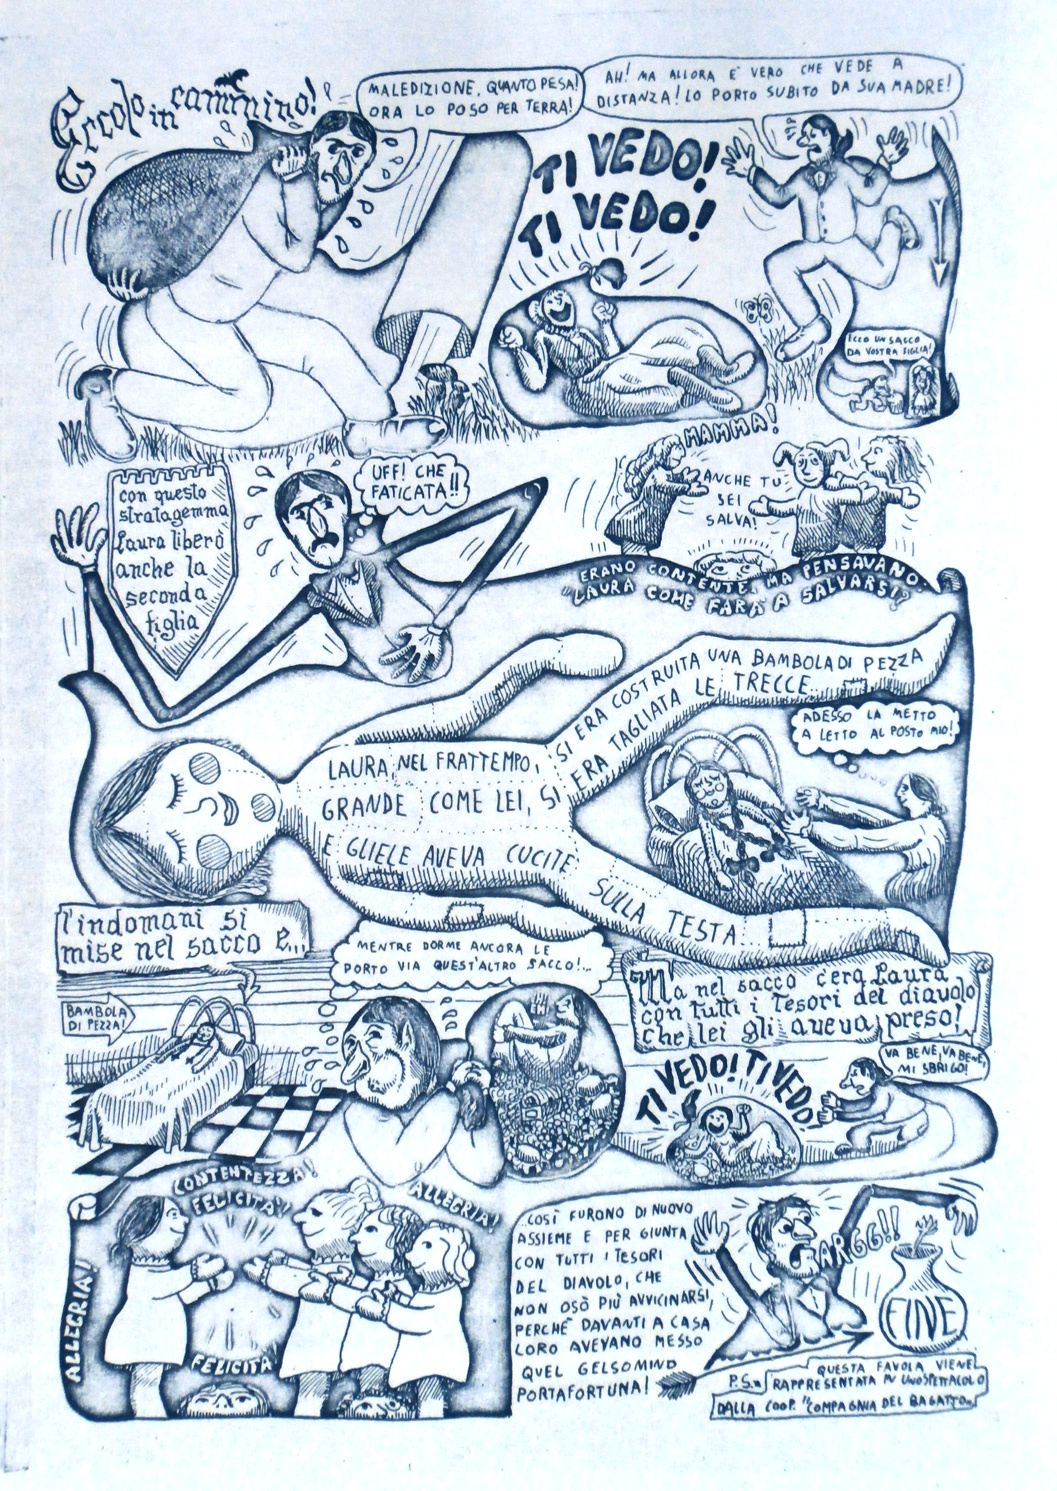 Eccolo in cammino!
MALEDIZIONE, QUANTO PESA!
ORA LO POSO PER TERRA!
AH! MA ALLORA E' VERO CHE VEDE A
DISTANZA! LO PORTO SUBITO DA SUA MADRE!
TI VEDO!
TI VEDO!
ECCO UN SACCO
DA VOSTRA FIGLIA!
con questo
stratagemma
Laura liberò
anche la
seconda
figlia
UFF! CHE
FATICATA!!
MAMMA!
ANCHE TU
SEI
SALVA!
ERANO CONTENTE, MA PENSAVANO:
"LAURA COME FARA' A SALVARSI?
LAURA, NEL FRATTEMPO, SI ERA COSTRUITA UNA BAMBOLA DI PEZZA
GRANDE COME LEI, SI ERA TAGLIATA LE TRECCE
E GLIELE AVEVA CUCITE SULLA TESTA...
ADESSO LA METTO
A LETTO AL POSTO MIO!
l'indomani si
mise nel sacco e...
MENTRE DORME ANCORA LE
PORTO VIA QUEST'ALTRO SACCO!...
Ma nel sacco c'era Laura
con tutti i tesori del diavolo
che lei gli aveva preso!
BAMBOLA
DI PEZZA!
TI VEDO! TI VEDO!
VA BENE, VA BENE,
MI SBRIGO!
CONTENTEZZA!
FELICITA'!
ALLEGRIA!
ALLEGRIA!
FELICITA'
...COSÌ FURONO DI NUOVO
ASSIEME E PER GIUNTA
CON TUTTI I TESORI
DEL DIAVOLO, CHE
NON OSÒ PIÙ AVVICINARSI,
PERCHÈ DAVANTI A CASA
LORO AVEVANO MESSO
QUEL GELSOMINO
PORTAFORTUNA!
ARGG!!
FINE
P.S. QUESTA FAVOLA VIENE
RAPPRESENTATA IN UNO SPETTACOLO
DALLA COOP. "COMPAGNIA DEL BAGATTO"